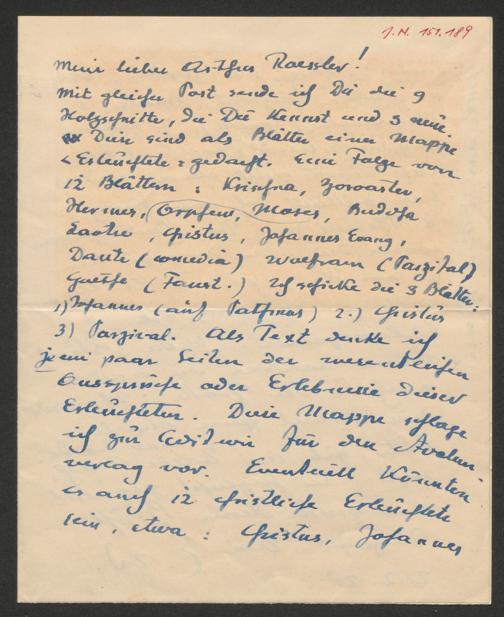 J. N. 151.189
Mein lieber Arthur Roessler!
Mit gleicher Post sende ich Dir die 9
Holzschnitte, die Du kennst und 3 neue.
Diese sind als Blätter einer Mappe
"Erleuchtete" gedacht. Eine Folge von
12 Blättern: Krischna, Zoroaster,
Hermes, Orpheus, Moses, Buddha
Laotse, Christus, Johannes Evang,
Dante (comedia) Wolfram (Parzival)
Goethe (Faust.) Ich schicke die 3 Blätter:
1) Johannes (auf Pathmos) 2.) Christus
3) Parzival. Als Text denke ich
je ein paar Seiten der wesentlichen
Aussprüche oder Erlebnisse dieser
Erleuchteten. Diese Mappe schlage
ich zur Edition für den Avalun
verlag vor. Eventuell könnten
es auch 12 christliche Erleuchtete
sein, etwa: Christus, Johannes